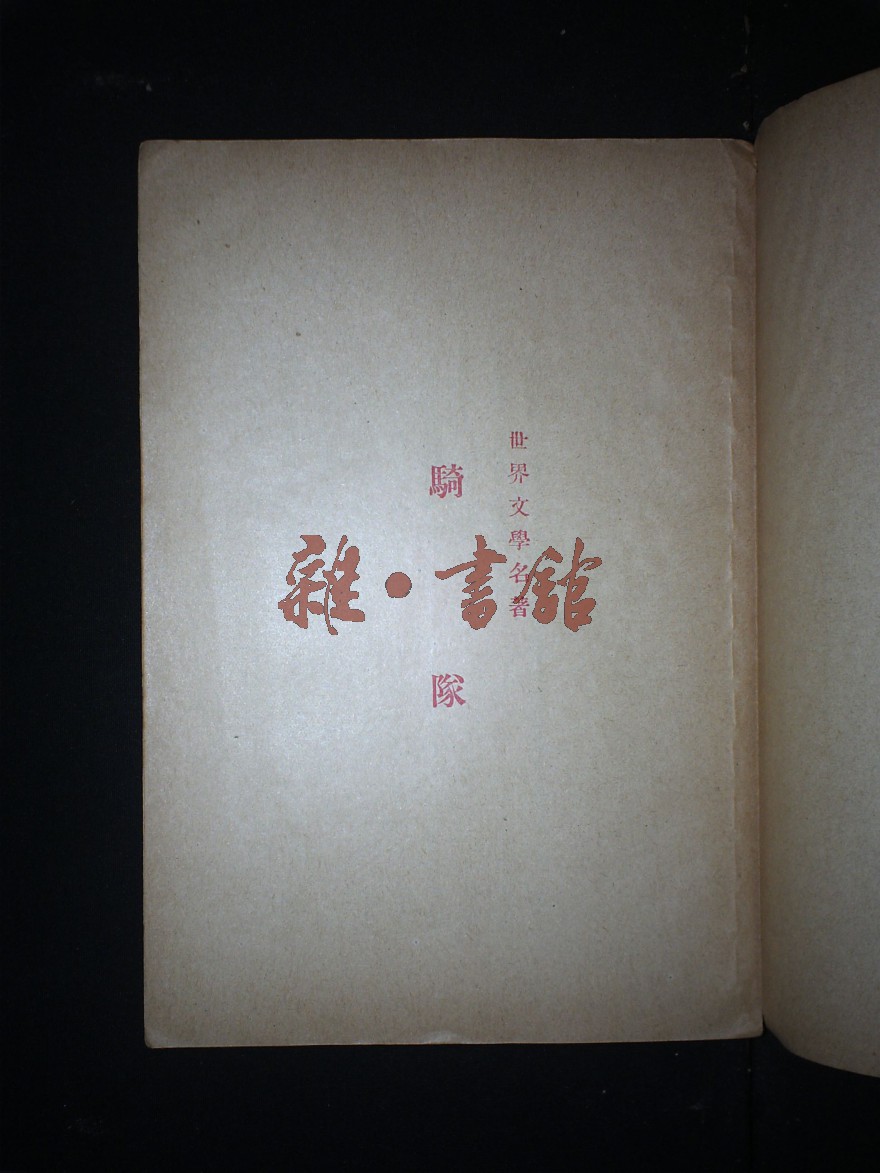 世界文學名著
騎隊
雜·書館